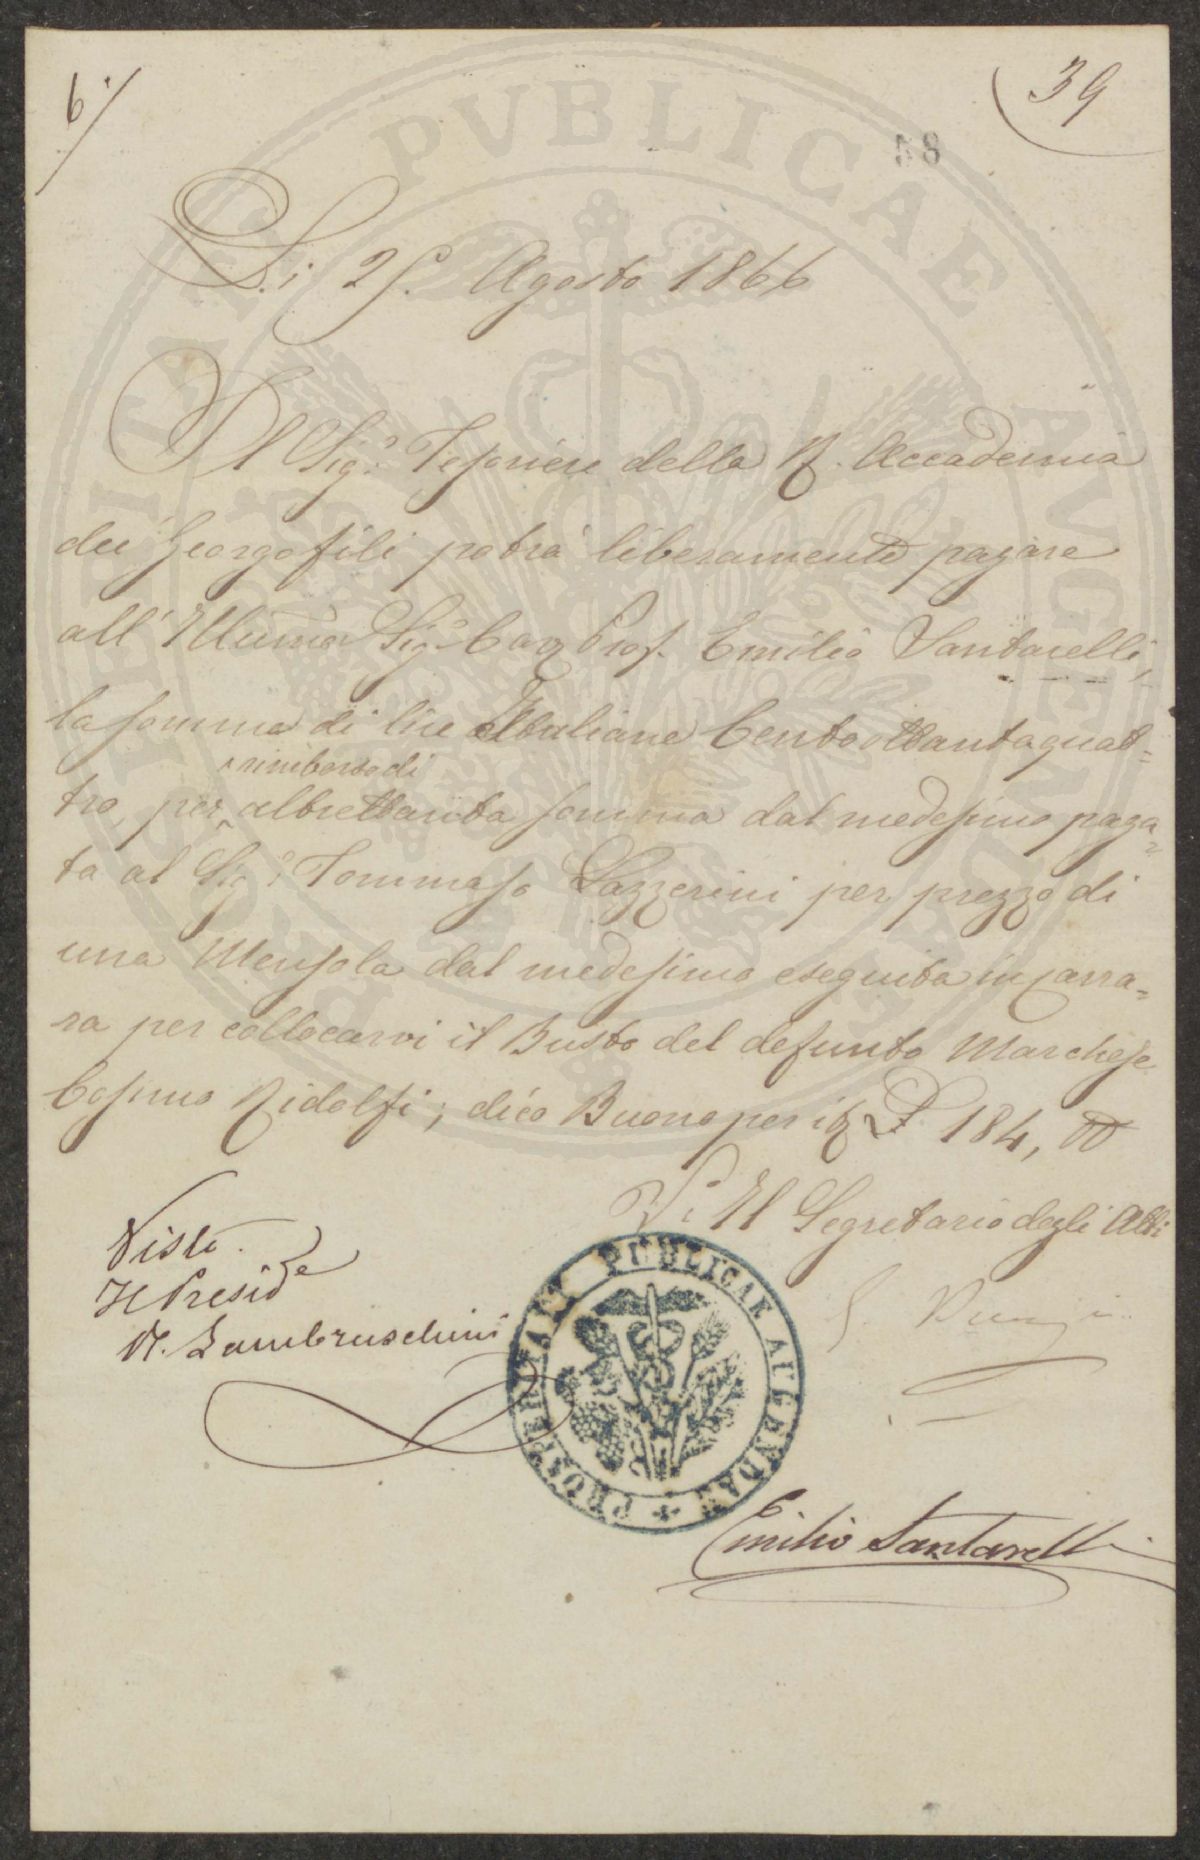 6./
39
58
Li 25. Agosto 1866
Il Sig.r Tesoriere della R. Accademia
dei Georgofili potrà liberamente pagare
all' Illumo Sig.r Cav. Prof. Emilio Santarelli,
la somma di lire Italiane Centoottantaquat=
tro, per rimborso di altrettanta somma dal medesimo paga=
ta al Sig.r Tommaso Lazzerini per prezzo di
una Mensola dal medesimo eseguita in Carra=
ra per collocarvi il Busto del defunto Marchese
Cosimo Ridolfi; dico Buono per it £ 184, 00
Il Segretario degli Atti
Visto.
Il Preside
R. Lambruschini
PROSPERITATI PUBLICAE AUGENDAE
Emilio Santarelli
PROSPERITATI PVBLICAE AVGENDAE